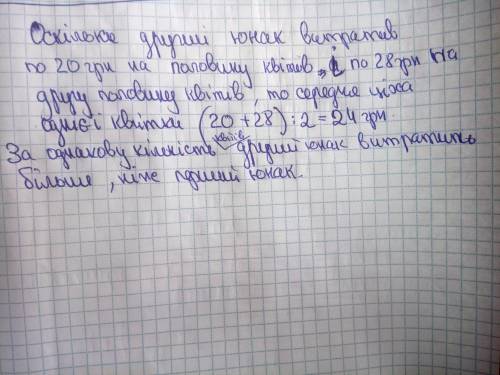 Оскільки другий юнак витратив
по 20 грн на половину квітів, і по 28 грн на
другу половину квітів, то середня ціна
однієї квітки (20 + 28) : 2 = 24 грн.
За однакову кількість квітів другий юнак витратить
більше, ніж перший юнак.